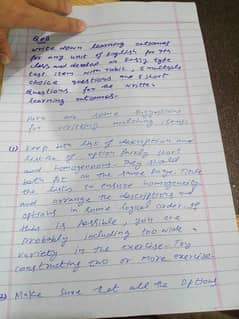 Q08
write down learning outcomes
for any unit of English for 7th
class and develop an Essay type
test item with rubric, 5 multiple
choice questions and 5 short
questions for the written
learning outcomes.
Here are some suggestions
for writing matching items
(1) Keep both list of descriptions and
the list of option fairly short
and homogeneous. They should
both fit on the same page. Title
the lists to ensure homogeneity
and arrange the descriptions and
options in some logical order. If
this is possible, you are
probably including too wide a
variety in the exercise. Try
constructing two or more exercise.
2) Make sure that all the options